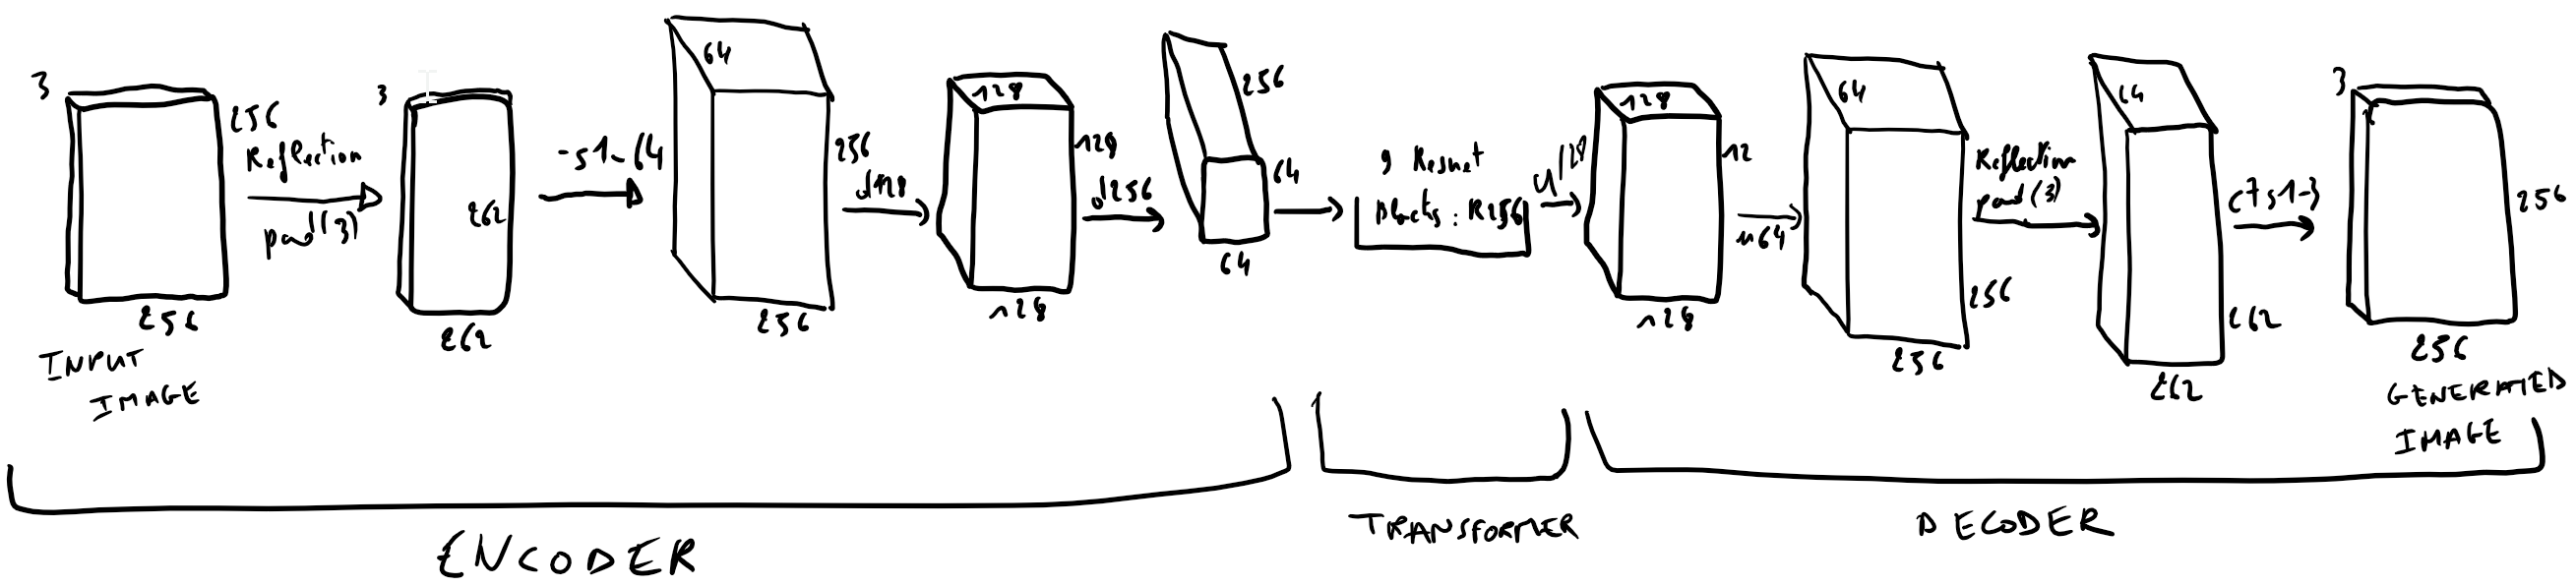 3
256
Reflection
pad(3)
256
INPUT
IMAGE
3
262
262
-s1-64
64
256
256
d128
128
128
128
d256
256
64
64
9 Resnet
Blocks: R256
u128
128
12
128
u64
64
256
256
Reflection
pad(3)
64
262
262
c7s1-3
3
256
256
GENERATED
IMAGE
ENCODER
TRANSFORMER
DECODER